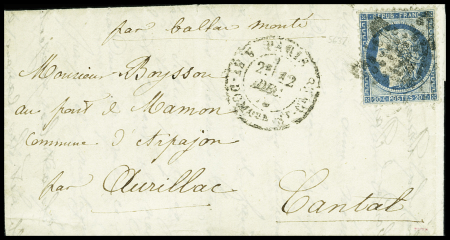 par ballon monté
Monsieur Boysson
au pont de Mamou
Commune d'Arpajon
par Aurillac
Cantal
PARIS
2E 12
DEC.
REPUB. FRANC.
20 C. POSTES 20 C.